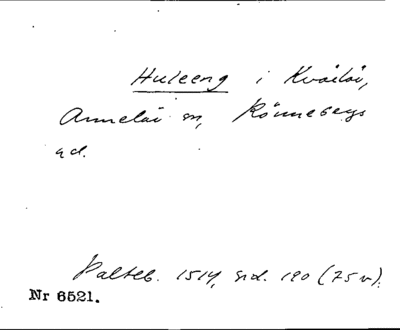 Huleeng i Kvälöv,
Annelöv sn, Rönnebergs
hd.
Palteb. 1514, sid. 190 (75 v).
Nr 6521.